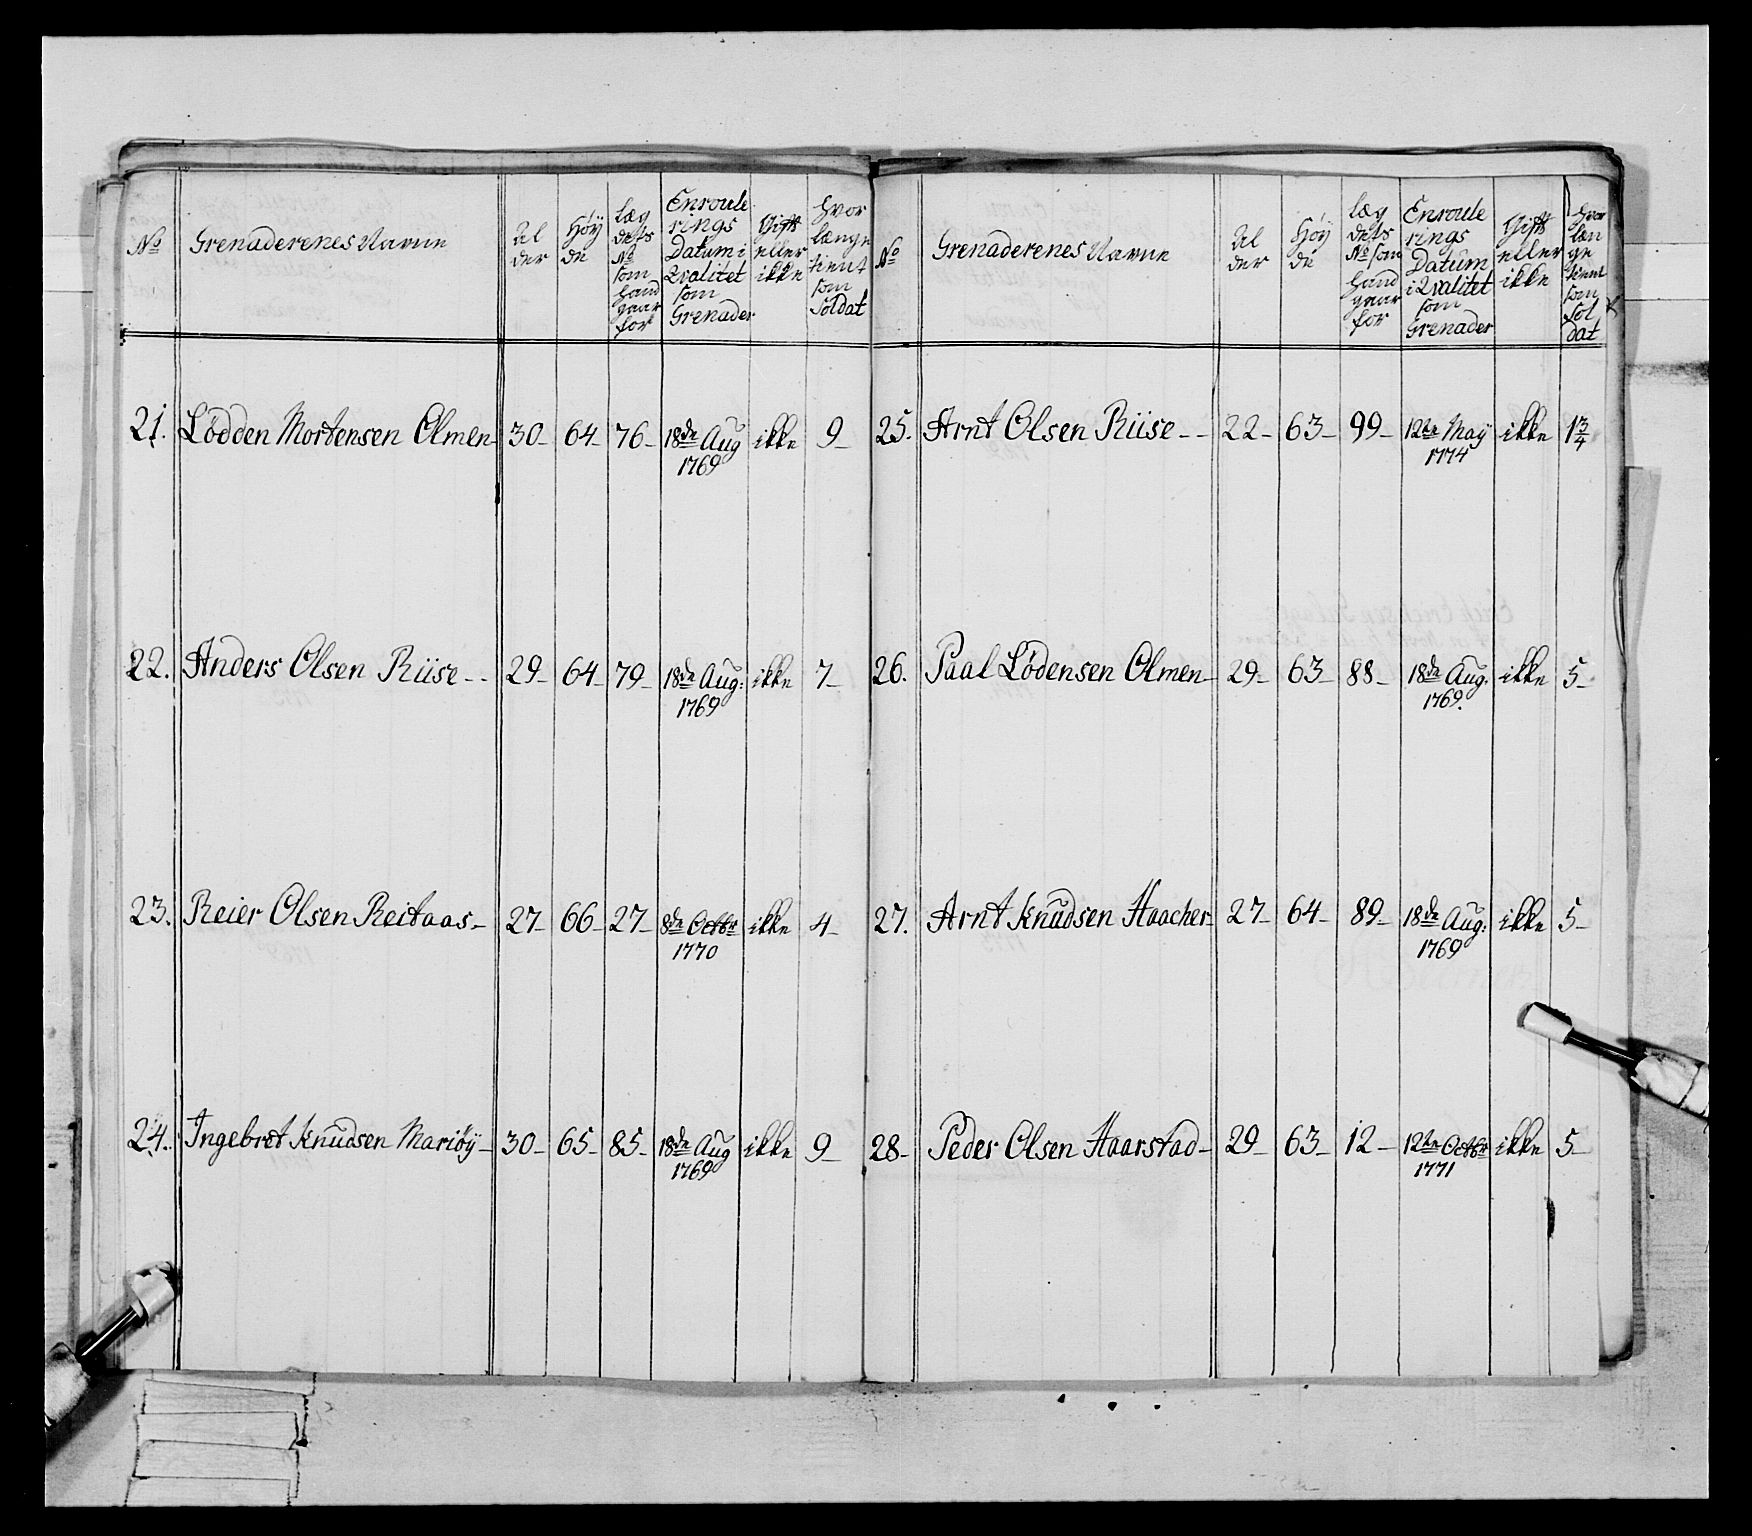 No Grenaderenes Navne Al der Høÿ de læg dets No som hand gaar for Enroule rings Datum i Qvalitet som Grenader Gift eller ikke hvor længe tient som Soldat
21. Lødden Mortensen Olmen 30 64 76 18de Aug 1769 ikke 9
22. Anders Olsen Riise 29 64 79 18de Aug: 1769 ikke 7
23. Reier Olsen Reitaas 27 66 27 8de Octbr 1770 ikke 4
24. Ingebret Knudsen Mariøÿ 30 65 85 18de Aug 1769 ikke 9
No Grenaderenes Navne Al der Høÿ de læg dets No som hand gaar for Enroule rings Datum i Qvalitet som Grenader Gift eller ikke hvor læn ge tient som Sol dat
25. Arnt Olsen Riise 22 63 99 12te Maÿ 1774 ikke 1 3/4
26. Paal Lødensen Olmen 29 63 88 18de Aug. 1769. ikke 5
27. Arnt Knudsen Haacher 27 64 89 18de Aug: 1769 ikke 5
28 Peder Olsen Haarstad 29 63 12 12te Octbr 1771 ikke 5